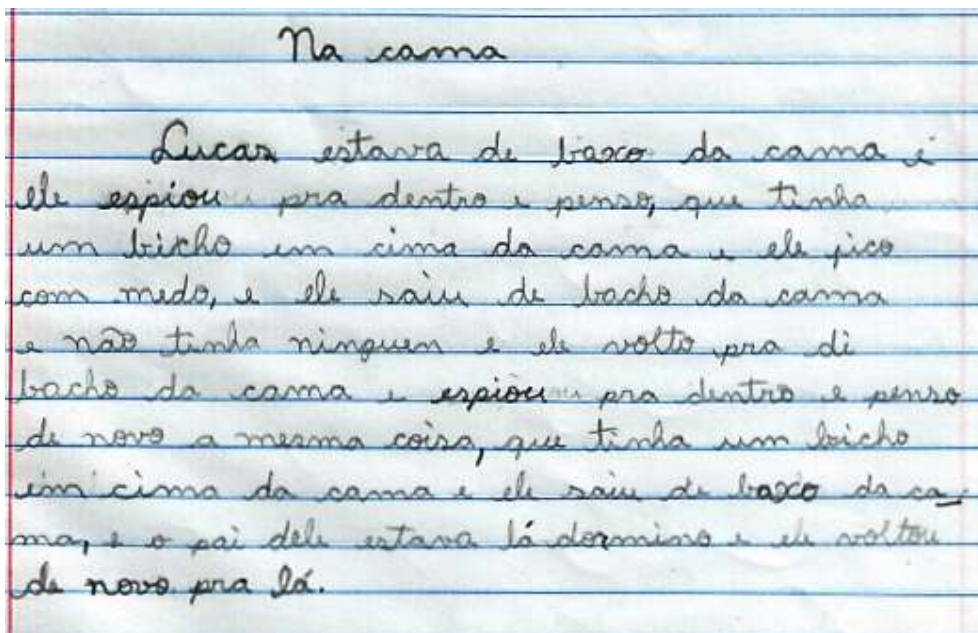 Na cama
Lucas estava de baxo da cama e
ele espiou pra dentro e penso, que tinha
um bicho em cima da cama e ele fico
com medo, e ele saiu de bacho da cama
e não tinha ninguen e ele volto pra di
bacho da cama e espiou pra dentro e penso
de novo a mesma coisa, que tinha um bicho
em cima da cama e ele saiu de baxo da ca-
ma, e o pai dele estava lá dormino e ele voltou
de novo pra lá.